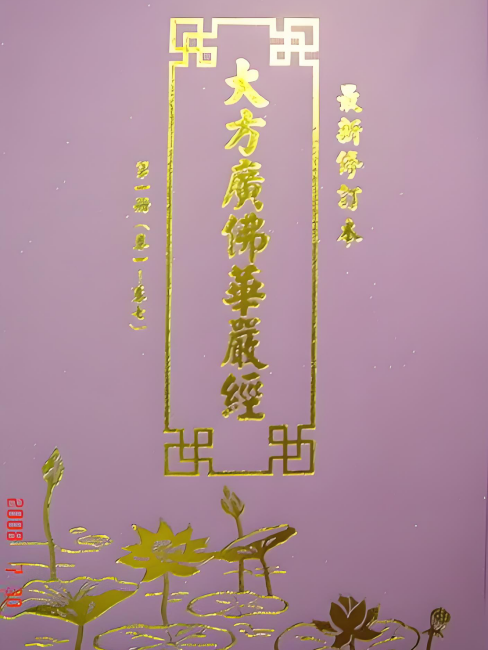 最新修訂本
大方廣佛華嚴經
第一冊（卷一—卷七）
2008 7 30